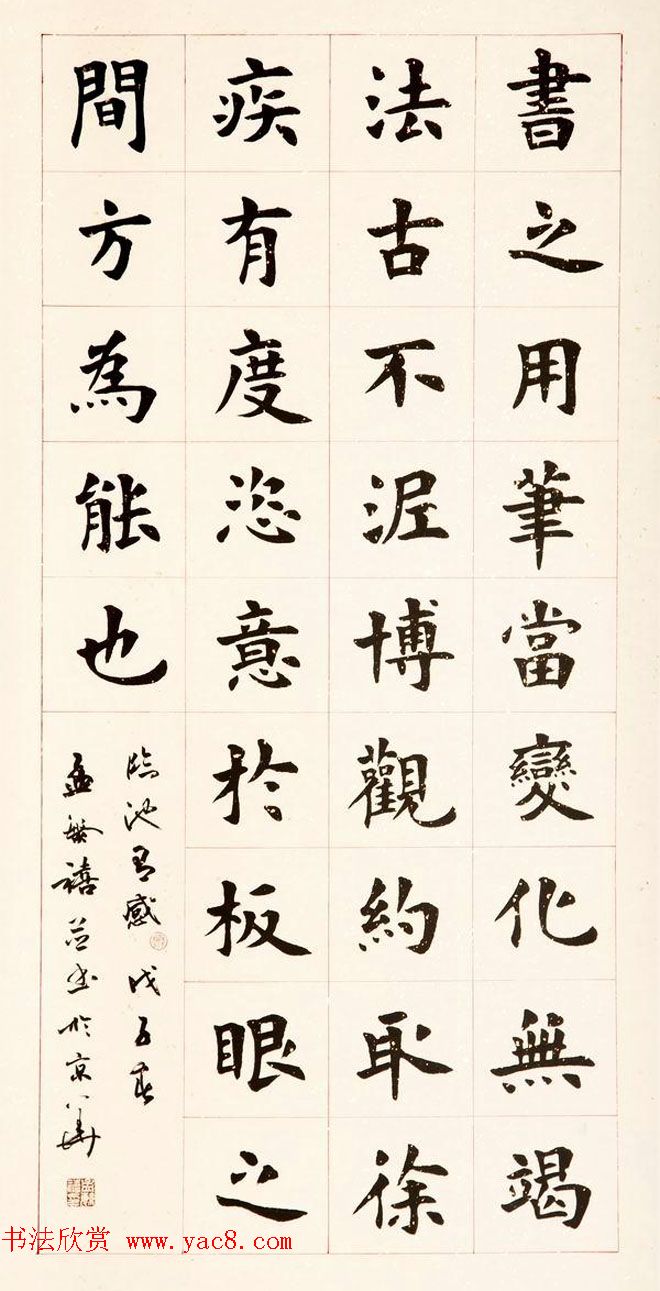 書之用筆當變化無竭
法古不泥博觀約取徐
疾有度恣意於板眼之
間方為能也
臨池有感 戊子春
孟繁禧并书於京華
书法欣赏 www.yac8.com